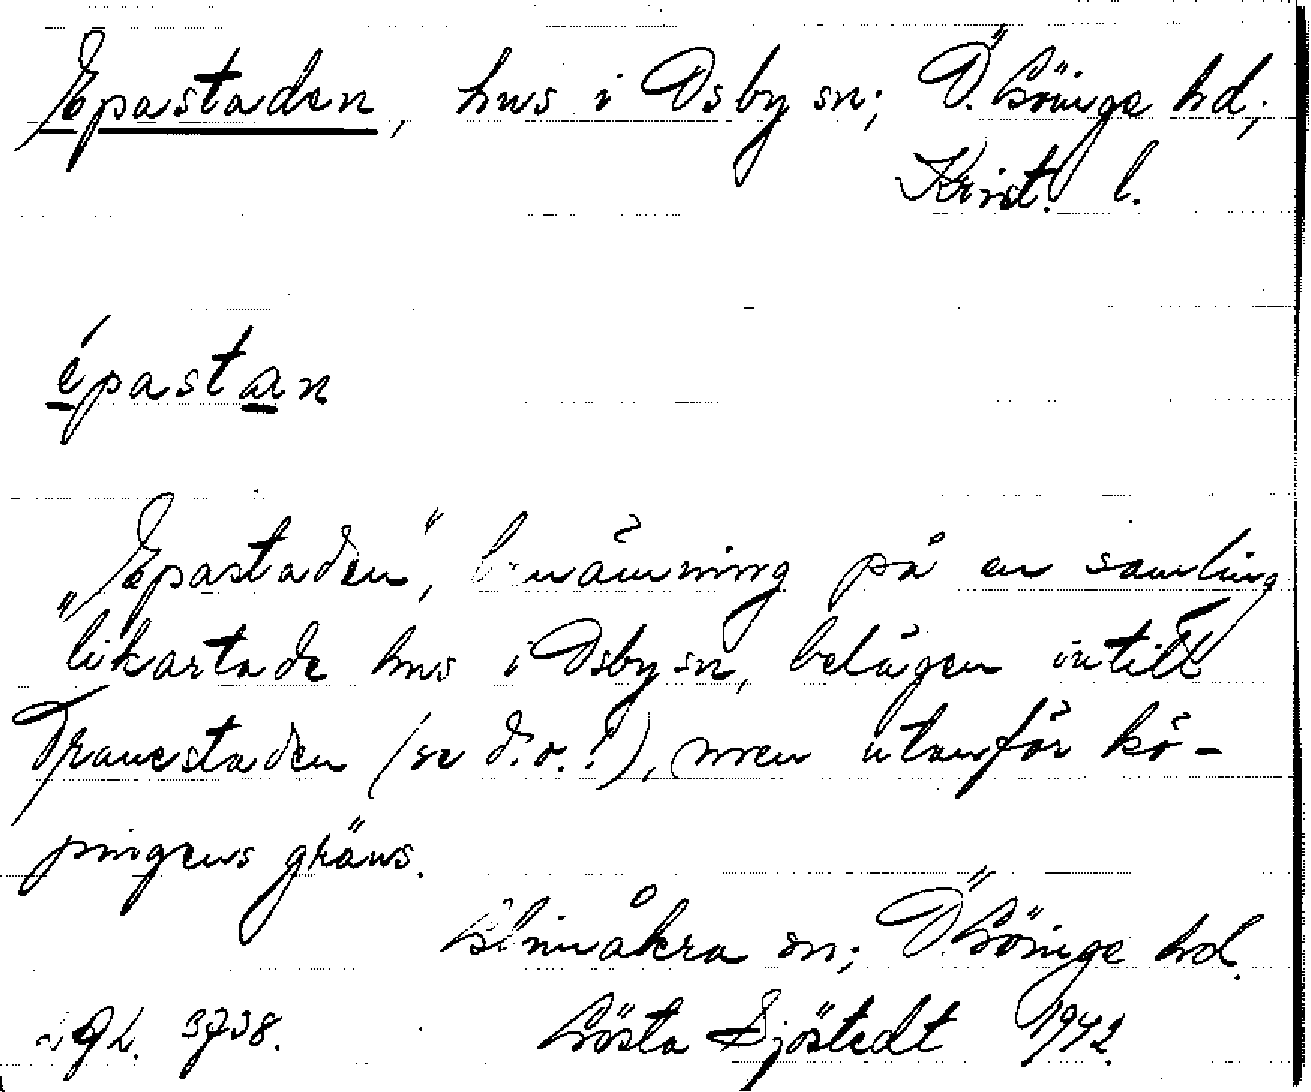 Epastaden, hus i Osby sn; Ö. Göinge hd;
Krist. l.
épastan
„Epastaden”, benämning på en samling
likartade hus i Osby sn, belägen intill
Tranestaden (se d.o.!), men utanför kö-
pingens gräns.
Glimåkra sn; Ö. Göinge hd.
3738.
Gösta Sjöstedt 1942.